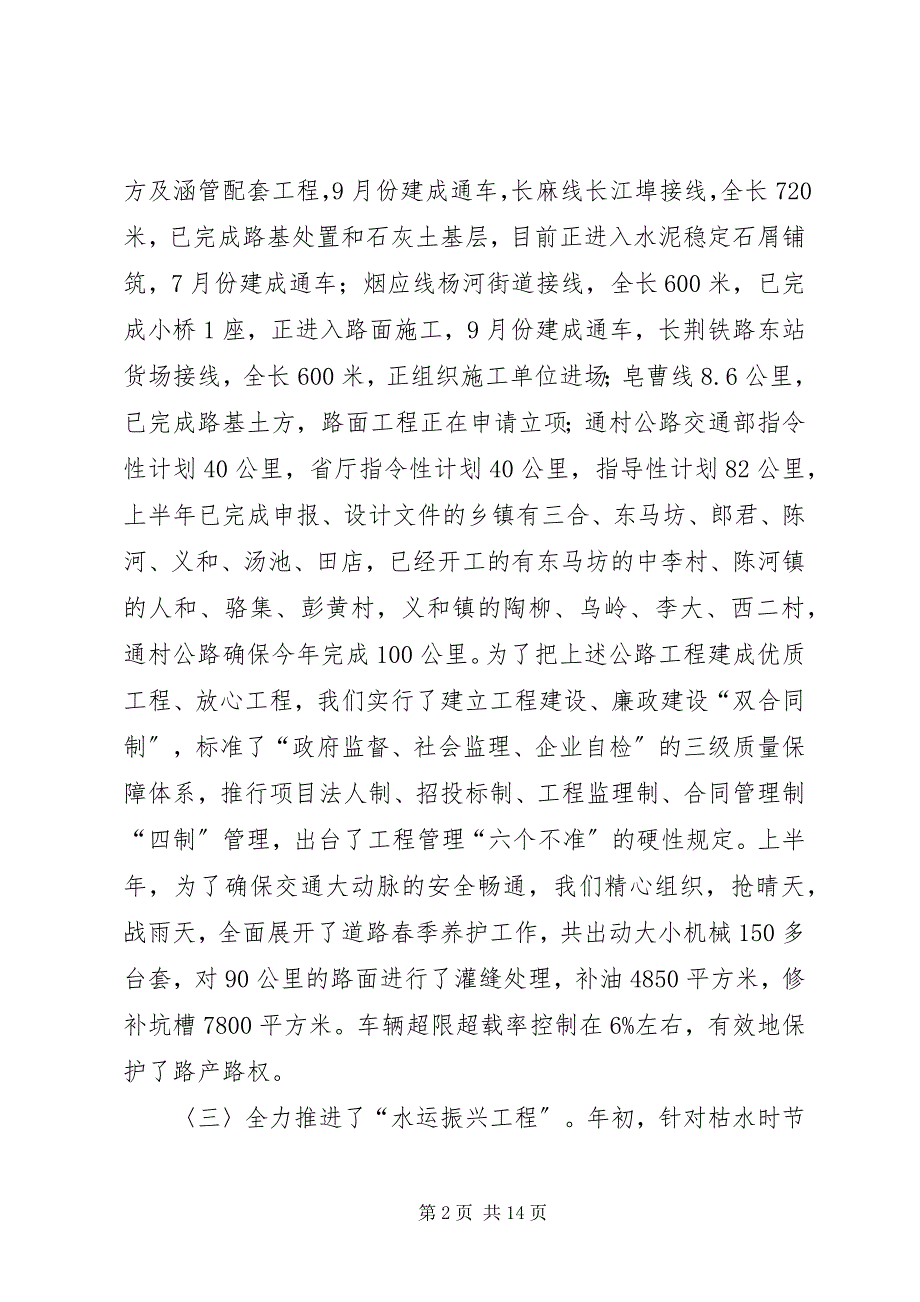 方及涵管配套工程，9 月份建成通车，长麻线长江埠接线，全长 720
米，已完成路基处置和石灰土基层，目前正进入水泥稳定石屑铺
筑，7 月份建成通车；烟应线杨河街道接线，全长 600 米，已完
成小桥 1 座，正进入路面施工，9 月份建成通车，长荆铁路东站
货场接线，全长 600 米，正组织施工单位进场；皂曹线 8.6 公里，
已完成路基土方，路面工程正在申请立项；通村公路交通部指令
性计划 40 公里，省厅指令性计划 40 公里，指导性计划 82 公里，
上半年已完成申报、设计文件的乡镇有三合、东马坊、郎君、陈
河、义和、汤池、田店，已经开工的有东马坊的中李村、陈河镇
的人和、骆集、彭黄村，义和镇的陶柳、乌岭、李大、西二村，
通村公路确保今年完成 100 公里。为了把上述公路工程建成优质
工程、放心工程，我们实行了建立工程建设、廉政建设“双合同
制〞，标准了“政府监督、社会监理、企业自检〞的三级质量保
障体系，推行项目法人制、招投标制、工程监理制、合同管理制
“四制〞管理，出台了工程管理“六个不准〞的硬性规定。上半
年，为了确保交通大动脉的安全畅通，我们精心组织，抢晴天，
战雨天，全面展开了道路春季养护工作，共出动大小机械 150 多
台套，对 90 公里的路面进行了灌缝处理，补油 4850 平方米，修
补坑槽 7800 平方米。车辆超限超载率控制在 6%左右，有效地保
护了路产路权。
〈三〉全力推进了“水运振兴工程〞。年初，针对枯水时节
第 2 页 共 14 页